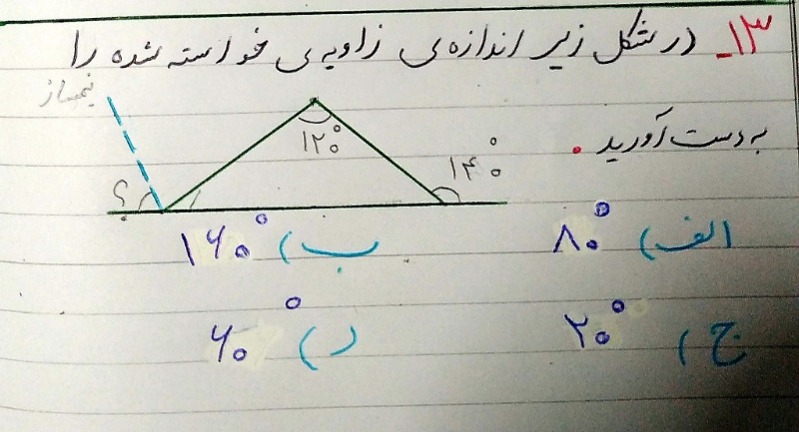 ۱۳ـ در شکل زیر اندازه‌ی زاویه‌ی خواسته شده را
به دست آورید.
نیمساز
۱۲۰°
۱۴۰°
؟
الف) ۸۰°
ب) ۱۶۰°
ج) ۲۰°
د) ۶۰°